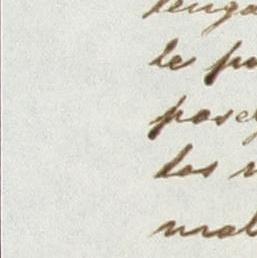 tenga
le pu
pose
los
mal